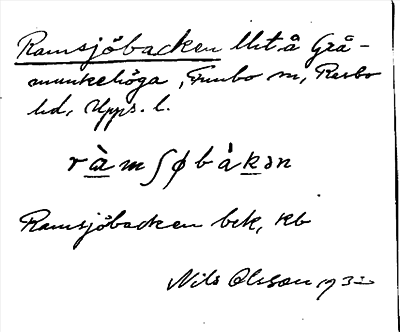 Ramsjöbacken lht å Grå-
munkehöga, Funbo sn, Rasbo
hd, Upps. l.
ràmʃøbàkən
Ramsjöbacken bek, kb
Nils Olsson 1932